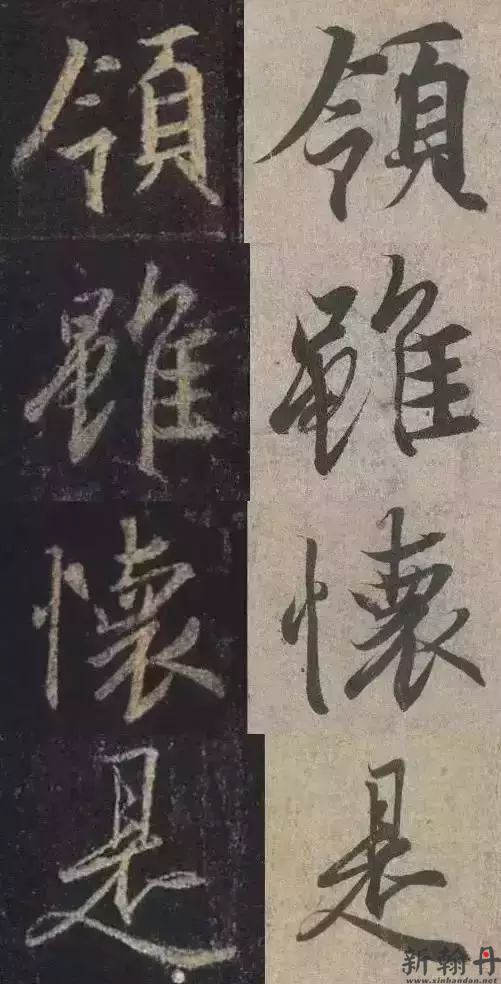 領 領
雖 雖
懷 懷
是 是
新翰丹
www.xinhandan.net